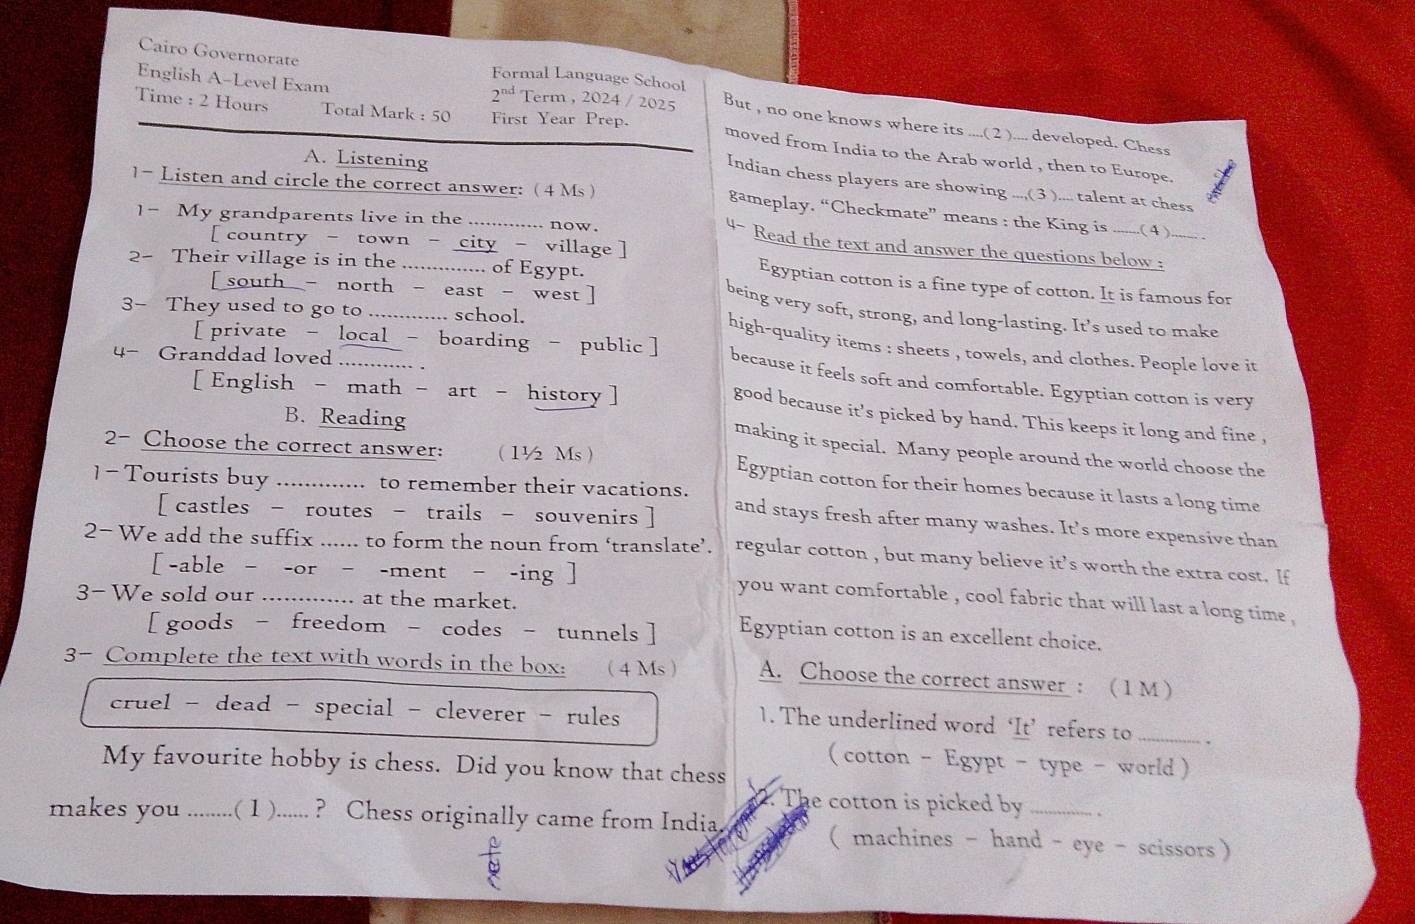 Cairo Governorate
English A-Level Exam
Time : 2 Hours Total Mark : 50
Formal Language School
2nd Term , 2024 / 2025
First Year Prep.
A. Listening
1- Listen and circle the correct answer: ( 4 Ms )
1- My grandparents live in the .............. now.
[ country - town - city - village ]
2- Their village is in the .............. of Egypt.
[ south - north - east - west ]
3- They used to go to .............. school.
[ private - local - boarding - public ]
4- Granddad loved ............. .
[ English - math - art - history ]
B. Reading
2- Choose the correct answer: ( 1½ Ms )
1- Tourists buy .............. to remember their vacations.
[ castles - routes - trails - souvenirs ]
2- We add the suffix ...... to form the noun from ‘translate’.
[ -able - -or - -ment - -ing ]
3- We sold our .............. at the market.
[ goods - freedom - codes - tunnels ]
3- Complete the text with words in the box: ( 4 Ms )
cruel - dead - special - cleverer - rules
My favourite hobby is chess. Did you know that chess
makes you ........( 1 )...... ? Chess originally came from India.
But , no one knows where its ....( 2 ).... developed. Chess
moved from India to the Arab world , then to Europe.
Indian chess players are showing ....( 3 ).... talent at chess
gameplay. “Checkmate” means : the King is .......( 4 )....... .
4- Read the text and answer the questions below :
Egyptian cotton is a fine type of cotton. It is famous for
being very soft, strong, and long-lasting. It’s used to make
high-quality items : sheets , towels, and clothes. People love it
because it feels soft and comfortable. Egyptian cotton is very
good because it’s picked by hand. This keeps it long and fine ,
making it special. Many people around the world choose the
Egyptian cotton for their homes because it lasts a long time
and stays fresh after many washes. It’s more expensive than
regular cotton , but many believe it’s worth the extra cost. If
you want comfortable , cool fabric that will last a long time ,
Egyptian cotton is an excellent choice.
A. Choose the correct answer : ( 1 M )
1. The underlined word ‘It’ refers to ............ .
( cotton - Egypt - type - world )
2. The cotton is picked by ............ .
( machines - hand - eye - scissors )